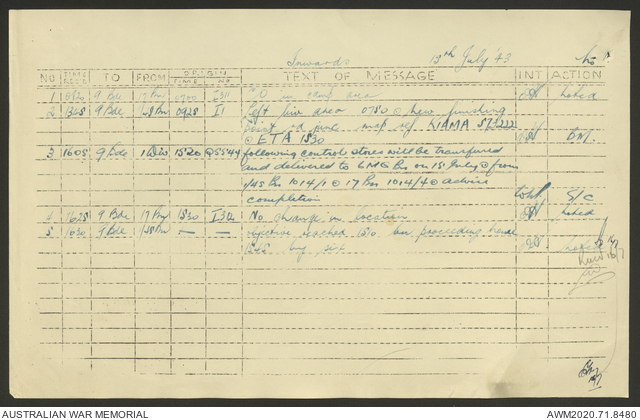 Inwards 15th July '43 No 1
NO TIME RECD TO FROM ORIGIN TIME NO TEXT OF MESSAGE INT ACTION
1 9 Bde 17 Bn 0700 in camp area Noted
2 1305 9 Bde 45 Bn 0925 I1 Left biv area 0750 @ new finishing
point rd junc map ref KIAMA 572222
@ ETA 1530 BM.
3 1605 9 Bde 1 Div 1520 Q5549 following control stores will be transferred
and delivered to 6 MG Bn on 15 July @ from
1/45 Bn 1014/1 @ 17 Bn 1014/4 @ advise
completion S/C
4 1625 9 Bde 17 Bn 1530 No change in location Noted
5 1630 9 Bde 45 Bn — — objective reached 1510 bn proceeding hence
1545
16/7
AUSTRALIAN WAR MEMORIAL AWM2020.71.8480